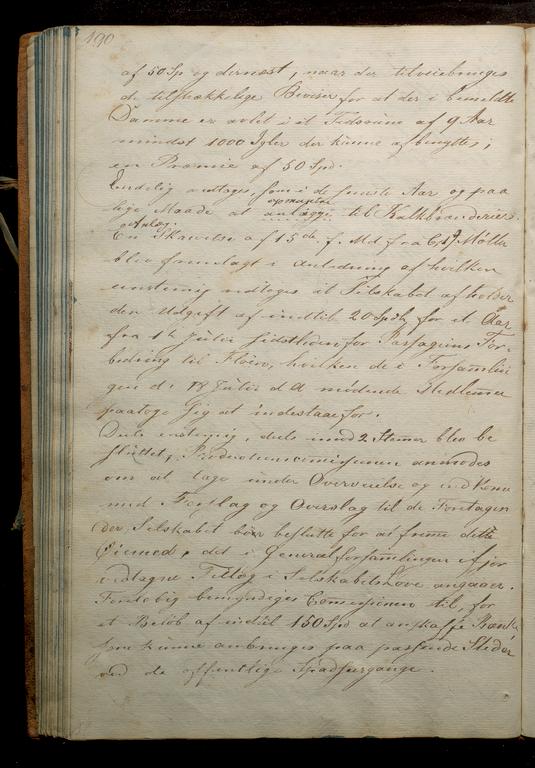 190
af 50 Sp og dernæst, naar der tilveiebringes
de tilstrækkelige Beviser for at der i bemeldte
Damme er avlet i et Tidsrum af 9 Aar
mindst 1000 Igler der kunne afbenyttes;
en Præmie af 50 Spd.
Endelig antages, som i de første Aar og paa
lige Maade at opmuntre til Kalkbrænderiers
Anlæg.
En Skrivelse af 15de f. Md fra C. Møller
blev fremlagt i Anledning af hvilken
eenstemig vedtoges at Selskabet afholder
den Udgift af indtil 20 Spd, for et Aar
fra 1st Julii sidstleden for Passagens For-
bedring til Fløien, hvilken de i Forsamlin
gen d. 18 Julii d. A. mødende Medlemmer
paatoge sig at indestaae for.
Deels eenstemig, deels mod 2 Stemmer blev be
sluttet, Productionscomissionen anmodes
om at tage under Overveielse og indkomme
med Forslag og Overslag til de Foretagen
der, Selskabet bør beslutte for at fremme dette
Øiemed, det i Generalforsamlingen ifjor
vedtagne Tillæg i Selskabets Love angaaer.
Foreløbig bemyndiges Comissionen til, for
et Beløb af indtil 150 Spd at anskaffe Bænke
som kunne anbringes paa passende Steder
ved de offentlige Spadsergange.